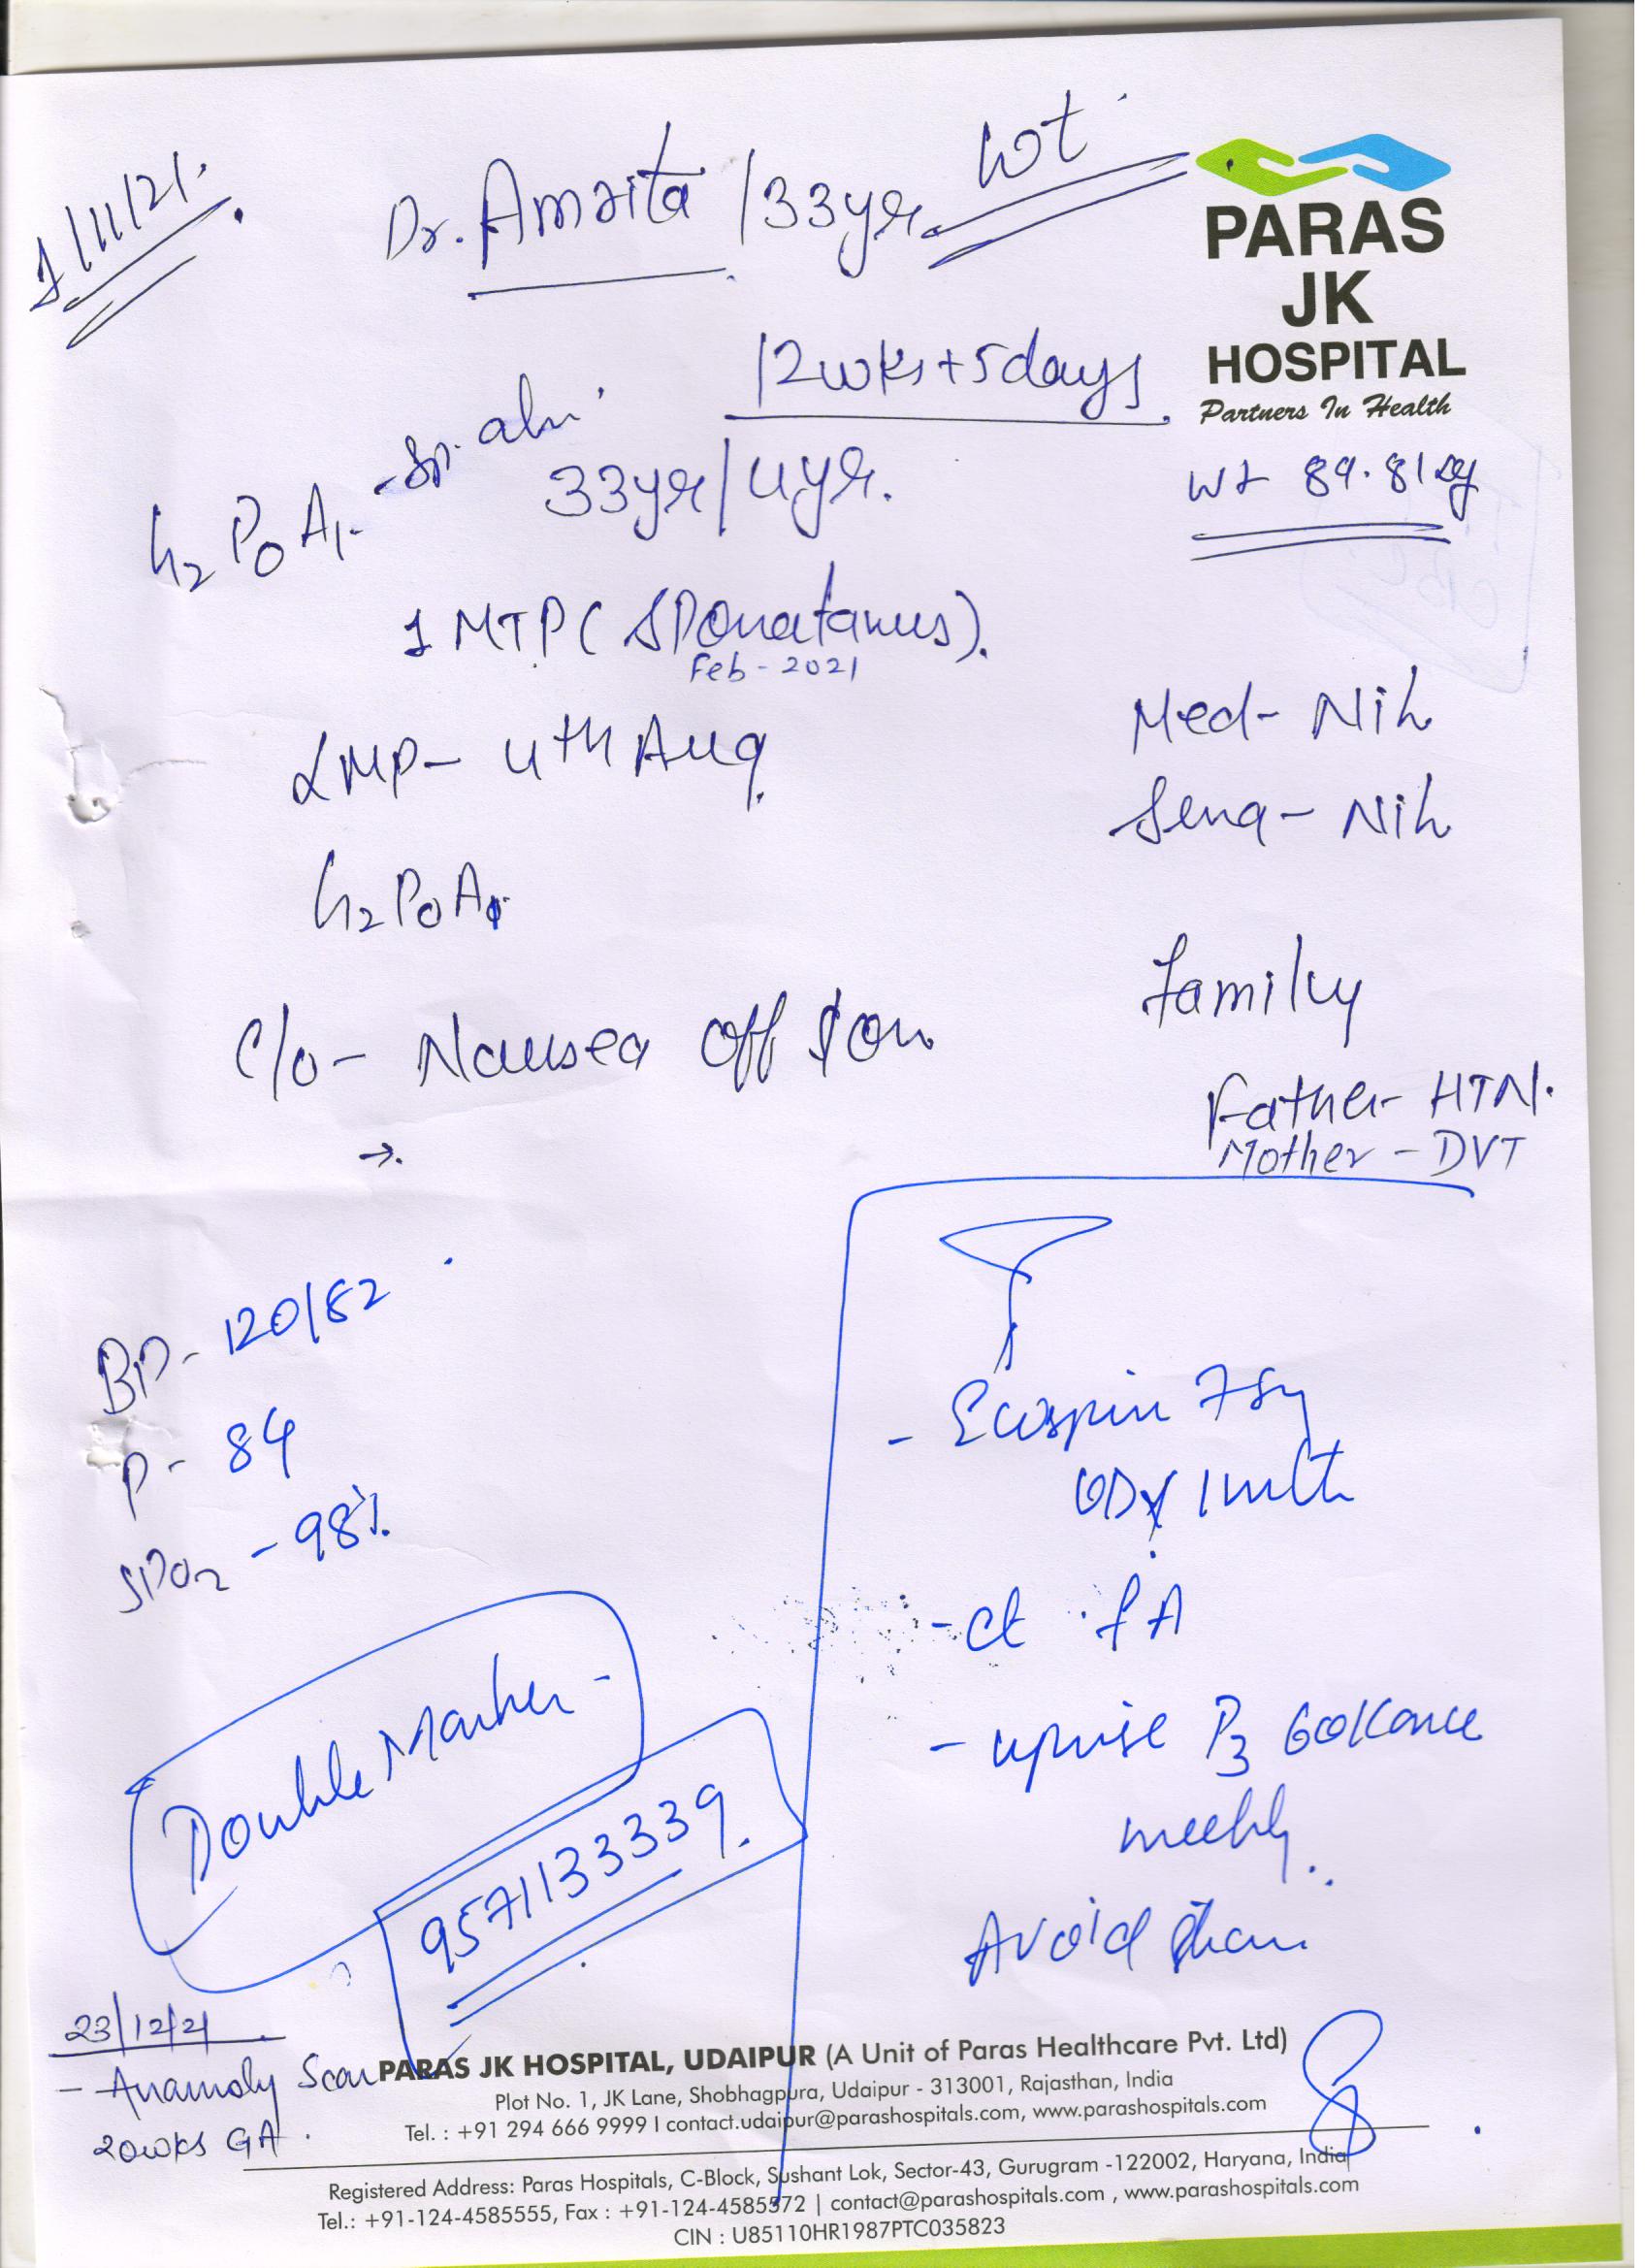 1/11/21.
Dr. Amrita /33yr. Wt.
PARAS
JK
HOSPITAL
Partners In Health
12wks+5days
G2 P0 A1 - Sp. abn.
33yr/4yr.
Wt 89.81kg
1 MTP ( SPonatanus).
Feb - 2021
LMP- 4th Aug.
Med- Nil
Surg- Nil
G2 P0 A1
Family
C/o- Nausea off & on
Father- HTN.
Mother - DVT
→.
BP- 120/82
P- 84
SPO2 - 98%
- Ecosprin 75mg
OD x 1 mth
- Ct FA
- uprise D3 60K once
weekly.
Avoid
Double Marker -
9571133339.
23/12/21
- Anamoly Scan
20wks GA.
PARAS JK HOSPITAL, UDAIPUR (A Unit of Paras Healthcare Pvt. Ltd)
Plot No. 1, JK Lane, Shobhagpura, Udaipur - 313001, Rajasthan, India
Tel. : +91 294 666 9999 I contact.udaipur@parashospitals.com, www.parashospitals.com
Registered Address: Paras Hospitals, C-Block, Sushant Lok, Sector-43, Gurugram -122002, Haryana, India
Tel.: +91-124-4585555, Fax : +91-124-4585572 | contact@parashospitals.com , www.parashospitals.com
CIN : U85110HR1987PTC035823